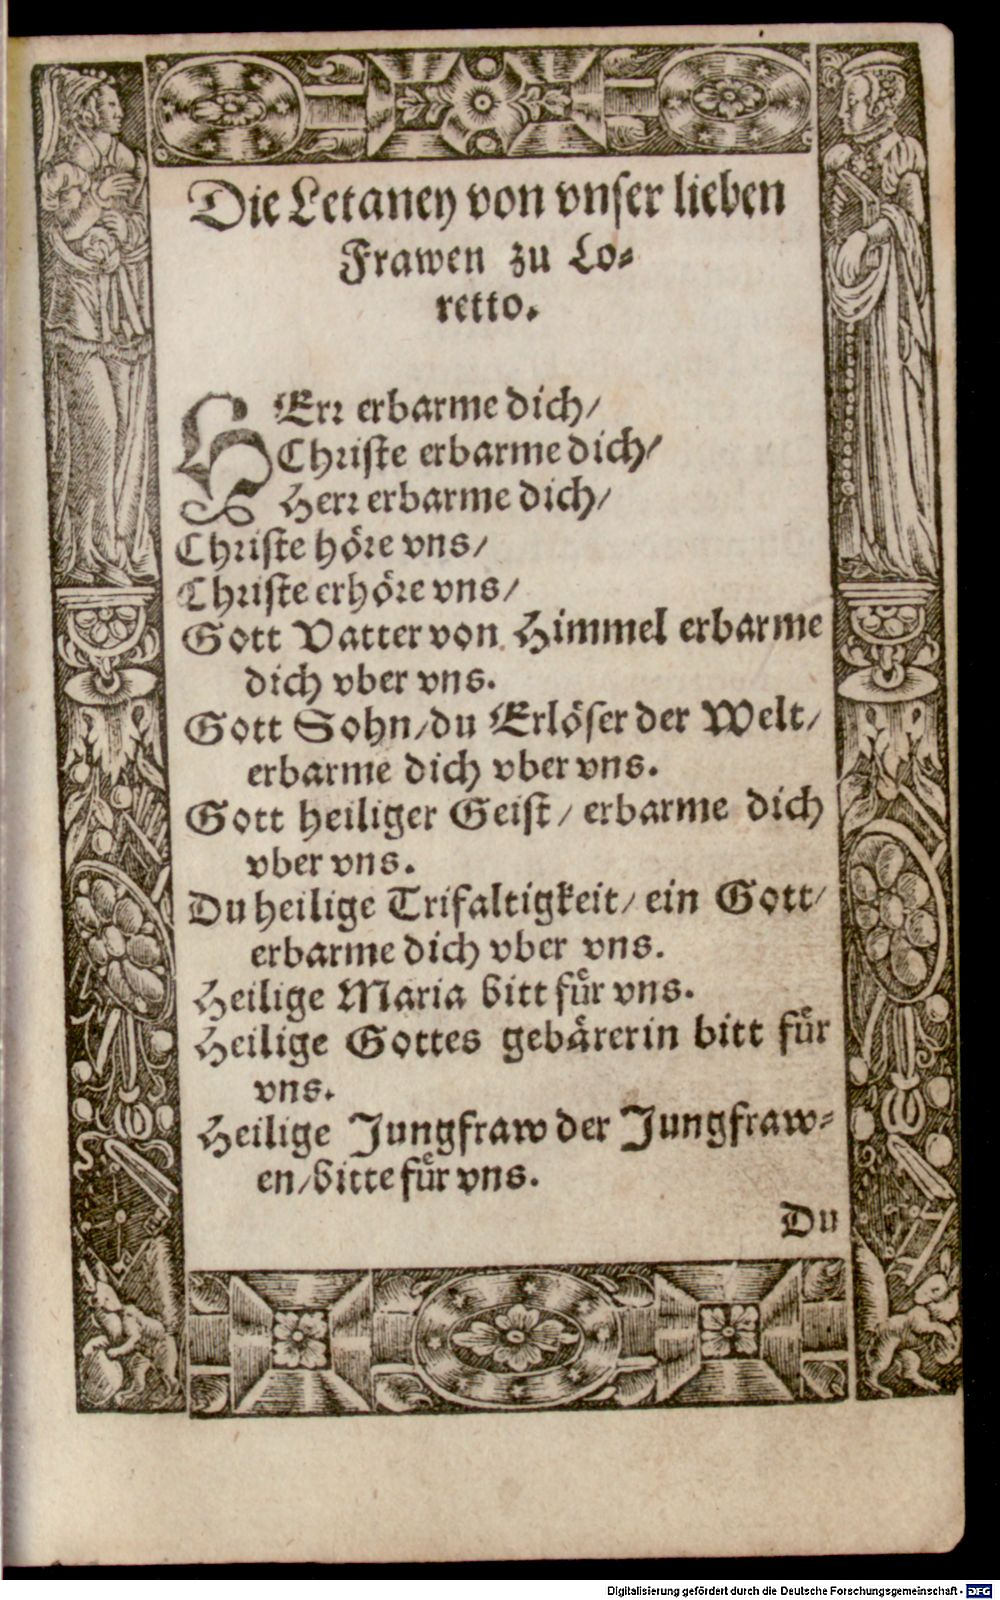 Die Letaney von vnser lieben
Frawen zu Lo⸗
retto.
HErr erbarme dich/
Christe erbarme dich/
Herr erbarme dich/
Christe höre vns/
Christe erhöre vns/
Gott Vatter von Himmel erbarme
dich vber vns.
Gott Sohn/du Erlöser der Welt/
erbarme dich vber vns.
Gott heiliger Geist/ erbarme dich
vber vns.
Du heilige Trifaltigkeit/ ein Gott/
erbarme dich vber vns.
Heilige Maria bitt für vns.
Heilige Gottes gebärerin bitt für
vns.
Heilige Jungfraw der Jungfraw⸗
en/bitte für vns.
Du
Digitalisierung gefördert durch die Deutsche Forschungsgemeinschaft - DFG